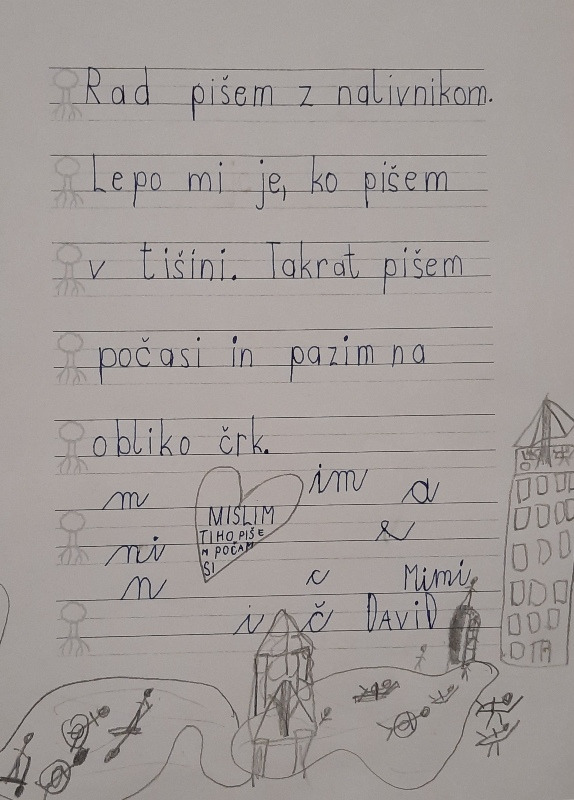 Rad pišem z nalivnikom.
Lepo mi je, ko pišem
v tišini. Takrat pišem
počasi in pazim na
obliko črk.
m
im
a
MISLIM
TIHO, PIŠE
M POČAM
SI
ni
n
c
Mimi
i
č
DAViD